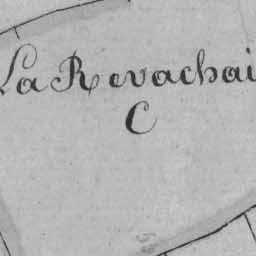 La Revachai
C